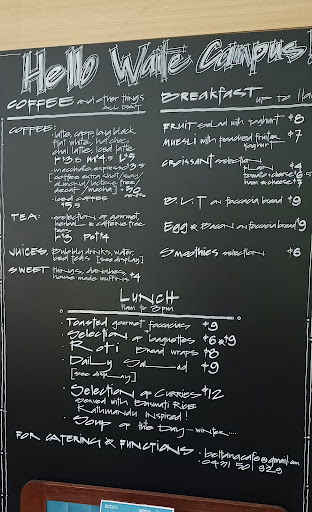 Hello Waite Campus!
COFFEE and other things
ALL DAY
COFFEE:
- latte, capp, long black,
flat white, hot choc,
chai latte, iced latte
S $3.5 M $4.5 L $5
- macchiato, espresso $3.5
[coffee extra shot/soy/
almond/lactose free/
decaf/mocha]
- iced coffee
$5.5
TEA: - selection of gourmet,
herbal & caffeine free
teas
Pot $4
JUICES, Bubbly drinks, water,
iced teas [see display]
SWEET things, danishes,
house-made muffins $4
BREAKFAST
UP TO 11am
FRUIT salad with yoghurt $8
MUESLI with poached fruits & $7
yoghurt
CROISSANT selection
PLAIN $4
tomato cheese $6.5
ham & cheese $7
B.L.T on focaccia bread $9
Egg & Bacon on focaccia bread $9
Smoothies selection $8
LUNCH
11am to 3pm
· Toasted gourmet focaccias $9
· Selection of baguettes $6 & $9
· Roti Bread wraps $8
· Daily Salad $9
[see display]
· Selection of Curries $12
served with Basmati Rice
Kathmandu inspired!
· Soup of the Day ~ winter....
FOR CATERING & FUNCTIONS · beltanacafe@gmail.com
0431 501 929